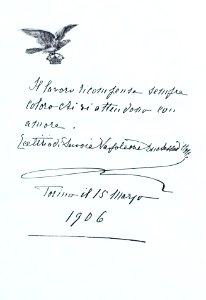 Il lavoro ricompensa sempre
coloro chi vi attendono con
amore.
di Savoia Napoleone
Torino il 15 Marzo
1906